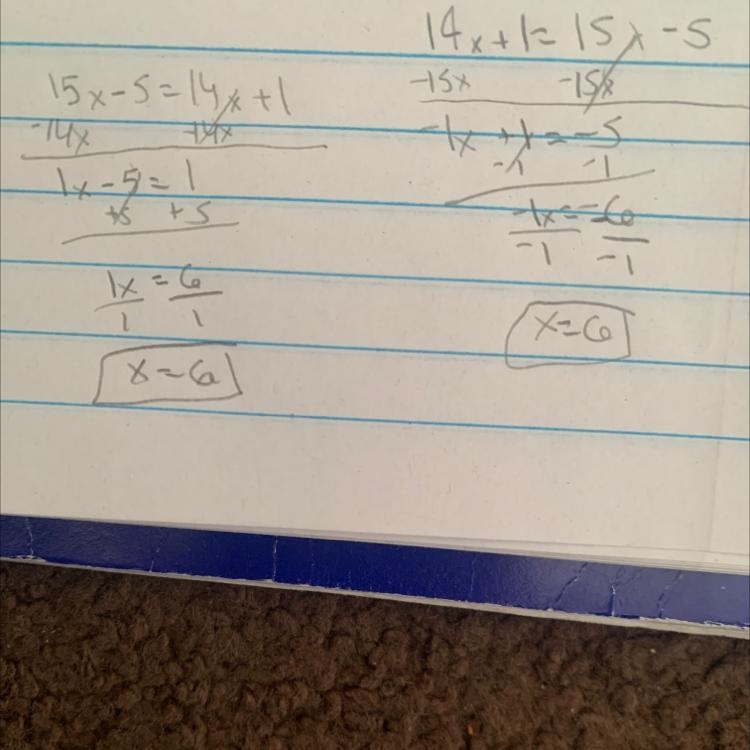 15x-5=14x+1
-14x -14x
1x-5=1
+5 +5
1x=6
1 1
x=6
14x+1=15x-5
-15x -15x
-1x+1=-5
-1 -1
-1x=-6
-1 -1
x=6